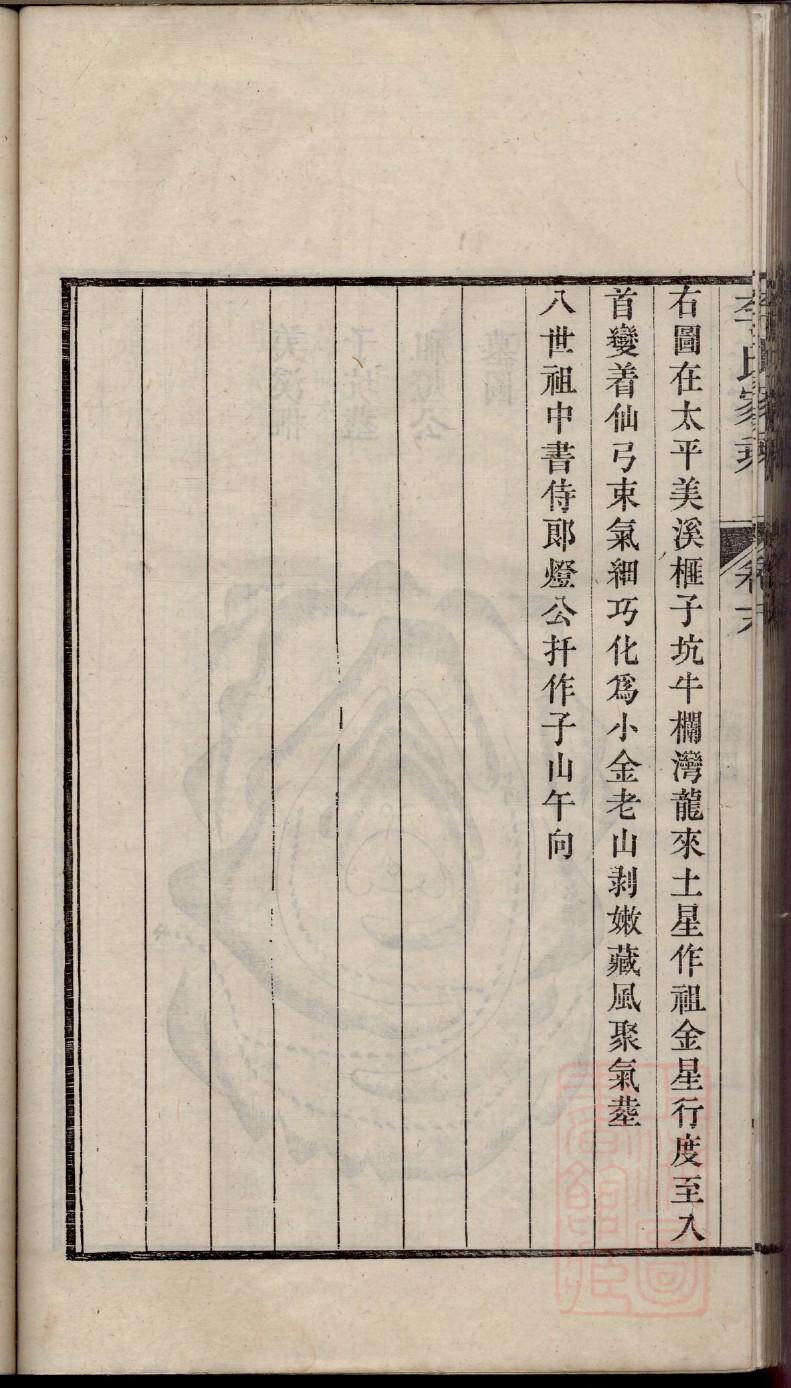 李氏家乘　卷六
右圖在太平美溪榧子坑牛欄灣龍來土星作祖金星行度至入
首變着仙弓束氣細巧化爲小金老山剥嫩藏風聚氣塟
八世祖中書侍郎燈公扦作子山午向